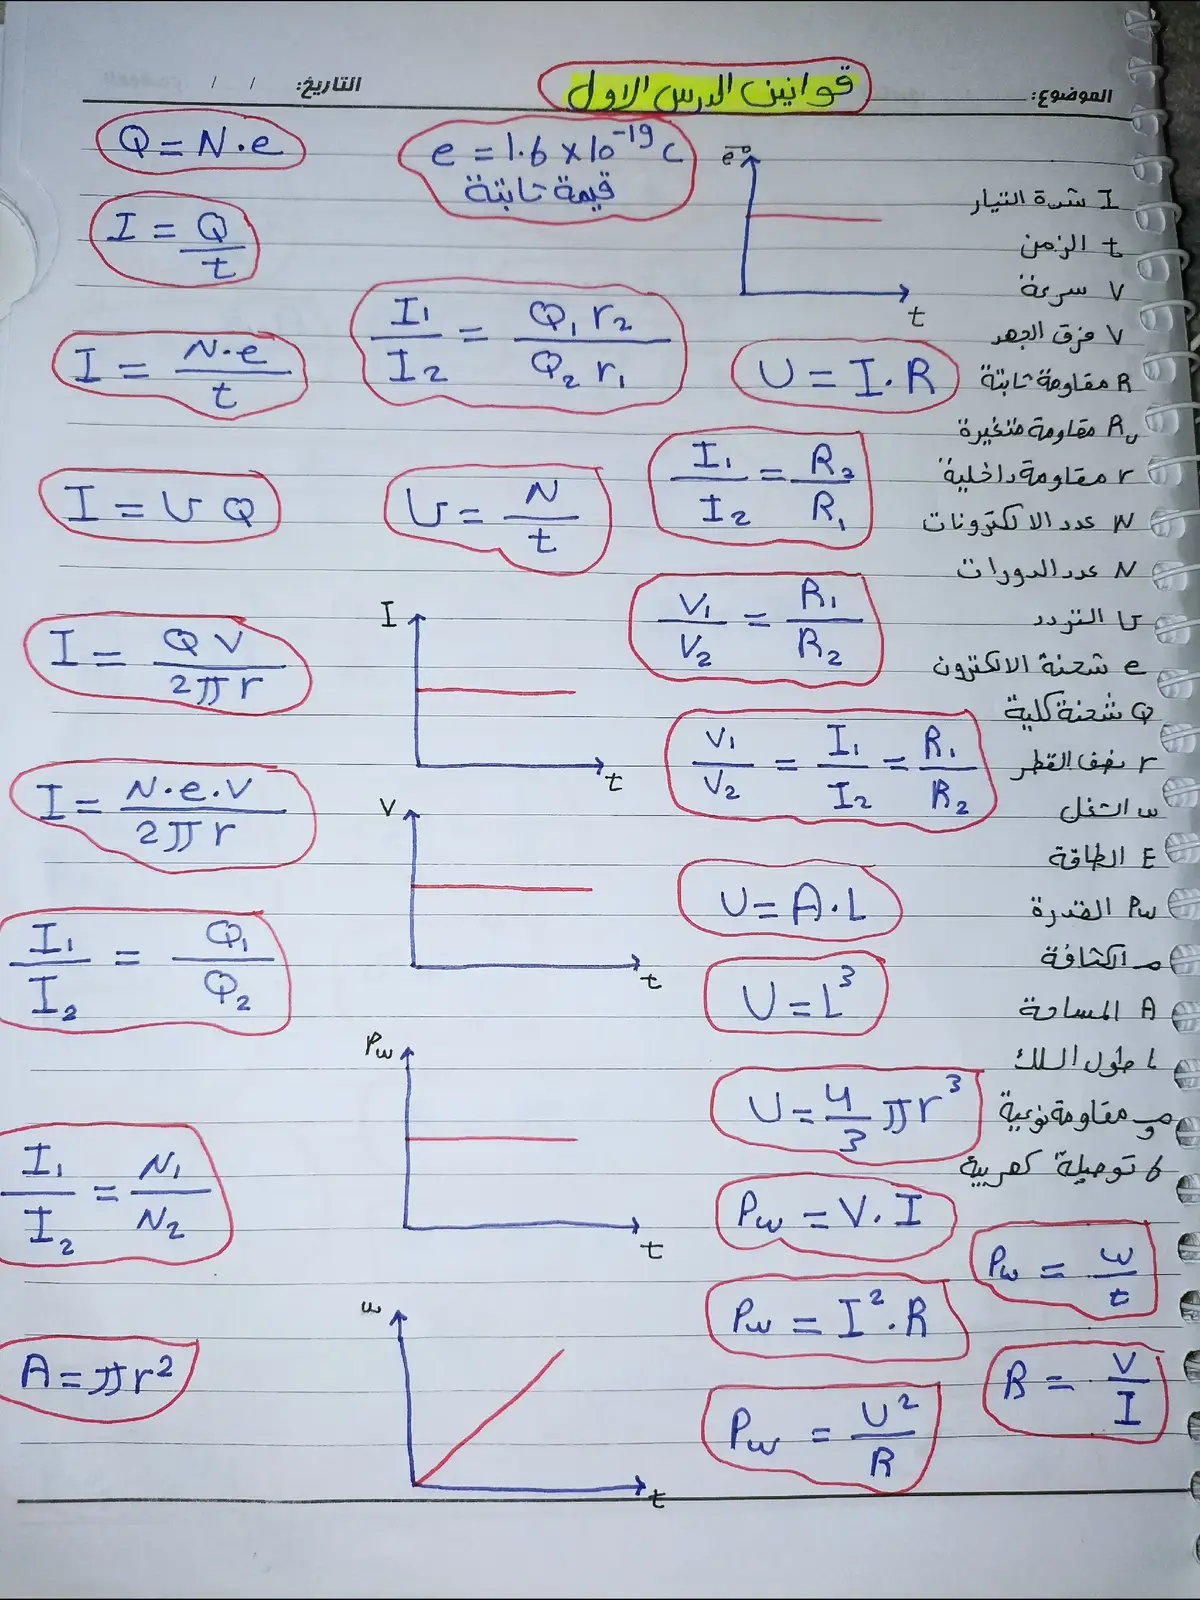 الموضوع:
قوانين الدرس الاول
التاريخ: / /
Q = N · e
e = 1.6 × 10⁻¹⁹ c
قيمة ثابتة
I = Q / t
I₁ / I₂ = Q₁ r₂ / Q₂ r₁
I = N · e / t
I = υ Q
υ = N / t
I = Q V / 2π r
I = N · e · V / 2π r
I₁ / I₂ = Q₁ / Q₂
I₁ / I₂ = N₁ / N₂
A = π r²
e⁻
t
I
t
V
t
Pw
t
w
t
U = I · R
I₁ / I₂ = R₂ / R₁
V₁ / V₂ = R₁ / R₂
V₁ / V₂ = I₁ / I₂ = R₁ / R₂
U = A · L
U = L³
U = 4/3 π r³
Pw = V · I
Pw = I² · R
Pw = U² / R
Pw = w / t
R = V / I
I شدة التيار
t الزمن
V سرعة
V فرق الجهد
R مقاومة ثابتة
Rᵥ مقاومة متغيرة
r مقاومة داخلية
N عدد الالكترونات
N عدد الدورات
υ التردد
e شحنة الالكترون
Q شحنة كلية
r نصف القطر
w الشغل
E الطاقة
Pw القدرة
الكثافة
A المساحة
L طول السلك
مقاومة نوعية
σ توصيلة كهربية